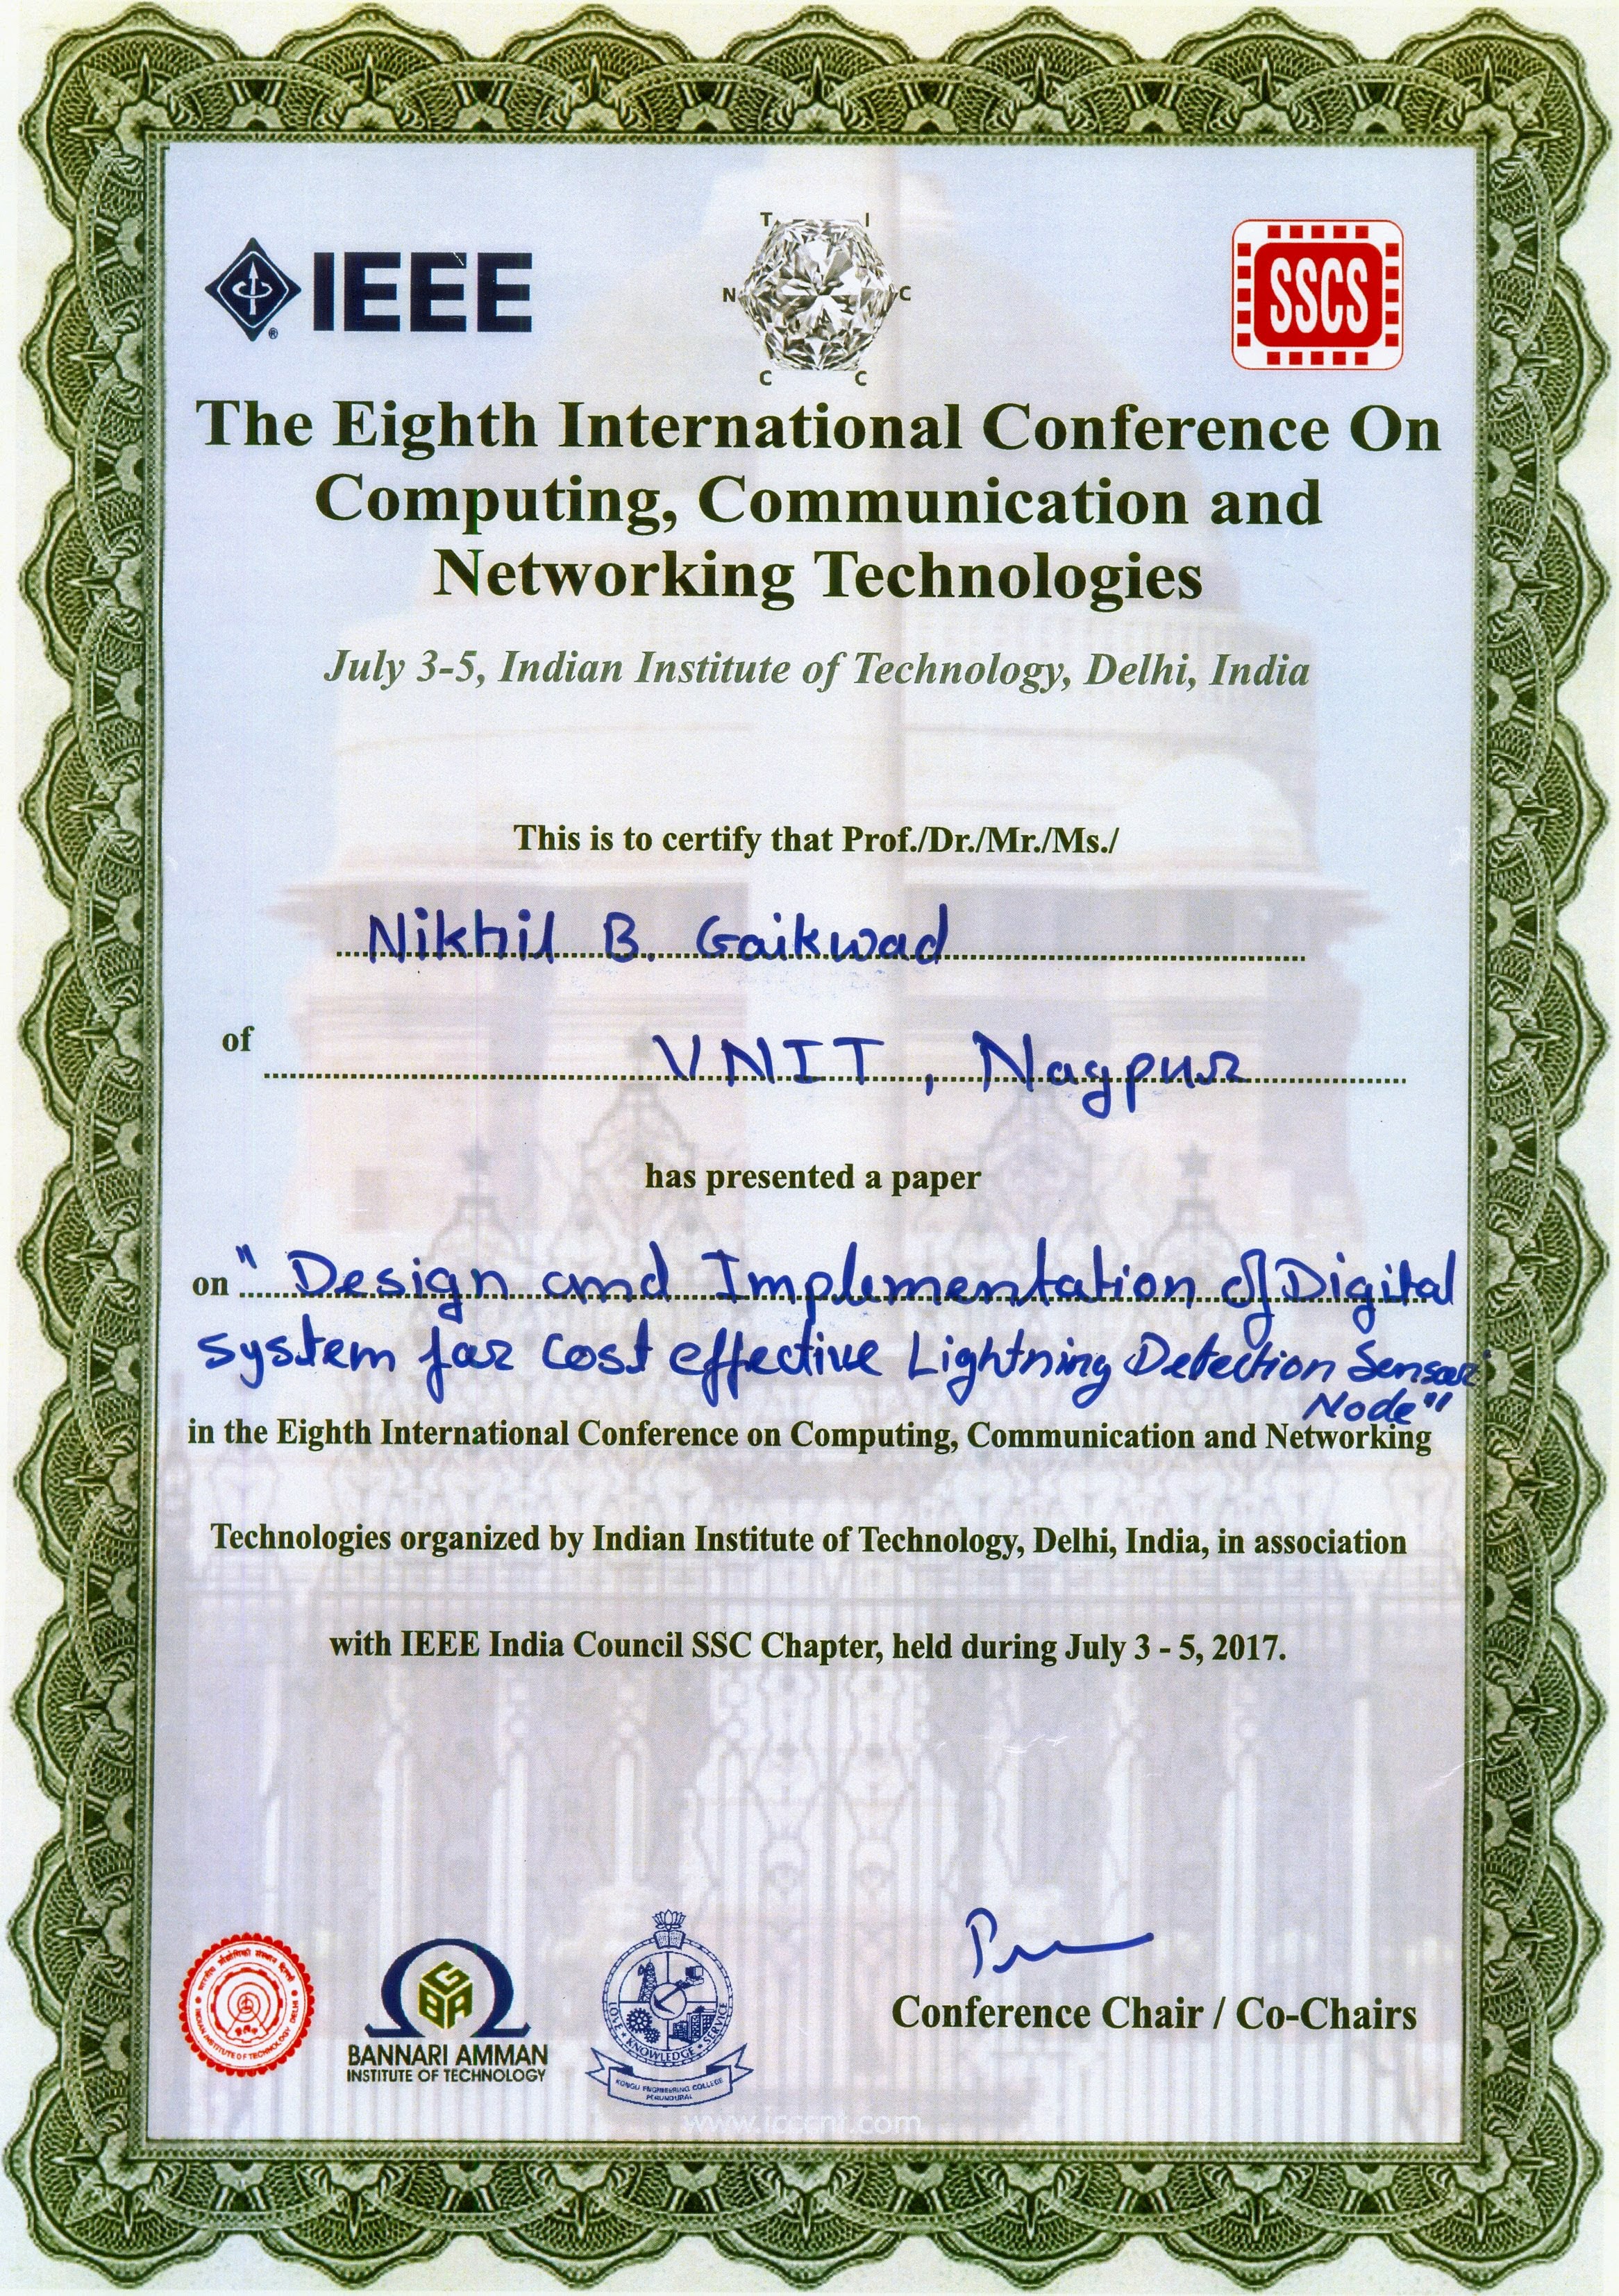 IEEE
®
T I
N C
C C
SSCS
The Eighth International Conference On
Computing, Communication and
Networking Technologies
July 3-5, Indian Institute of Technology, Delhi, India
This is to certify that Prof./Dr./Mr./Ms./
Nikhil B. Gaikwad
of VNIT, Nagpur
has presented a paper
on "Design and Implementation of Digital
system for cost effective Lightning Detection Sensor
Node"
in the Eighth International Conference on Computing, Communication and Networking
Technologies organized by Indian Institute of Technology, Delhi, India, in association
with IEEE India Council SSC Chapter, held during July 3 - 5, 2017.
Conference Chair / Co-Chairs
भारतीय प्रौद्योगिकी संस्थान दिल्ली
INDIAN INSTITUTE OF TECHNOLOGY DELHI
GBA
BANNARI AMMAN
INSTITUTE OF TECHNOLOGY
LOVE • KNOWLEDGE • SERVICE
KONGU ENGINEERING COLLEGE
PERUNDURAI
www.icccnt.com